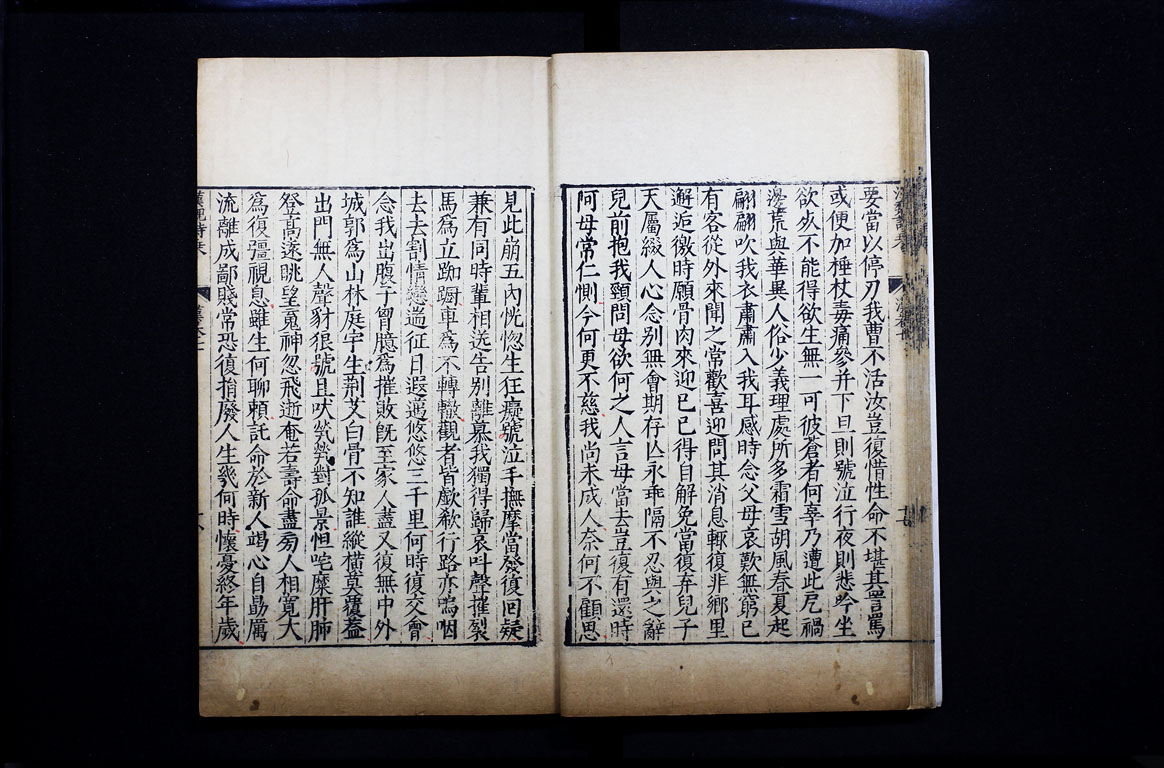 要當以停刃我曹不活汝豈復惜性命不堪其詈罵
或便加棰杖毒痛參并下旦則號泣行夜則悲吟坐
欲死不能得欲生無一可彼蒼者何辜乃遭此戹禍
邊荒與華異人俗少義理處所多霜雪胡風春夏起
翩翩吹我衣肅肅入我耳感時念父母哀歎無窮已
有客從外來聞之常歡喜迎問其消息輒復非鄉里
邂逅徼時願骨肉來迎己已得自解免當復弃兒子
天屬綴人心念別無會期存亾永乖隔不忍與之辭
兒前抱我頸問母欲何之人言母當去豈復有還時
阿母常仁惻今何更不慈我尚未成人奈何不顧思
見此崩五內恍惚生狂癡號泣手撫摩當發復回疑
兼有同時輩相送告別離慕我獨得歸哀叫聲摧裂
馬為立踟躕車為不轉轍觀者皆歔欷行路亦嗚咽
去去割情戀遄征日遐邁悠悠三千里何時復交會
念我出腹子曾臆為摧敗旣至家人盡又復無中外
城郭為山林庭宇生荆艾白骨不知誰縱橫莫覆蓋
出門無人聲豺狼號且吠煢煢對孤景怛咤糜肝肺
登高遠眺望䰟神忽飛逝奄若壽命盡旁人相寬大
為復彊視息雖生何聊賴託命於新人竭心自勗厲
流離成鄙賤常恐復捐廢人生幾何時懷憂終年歲